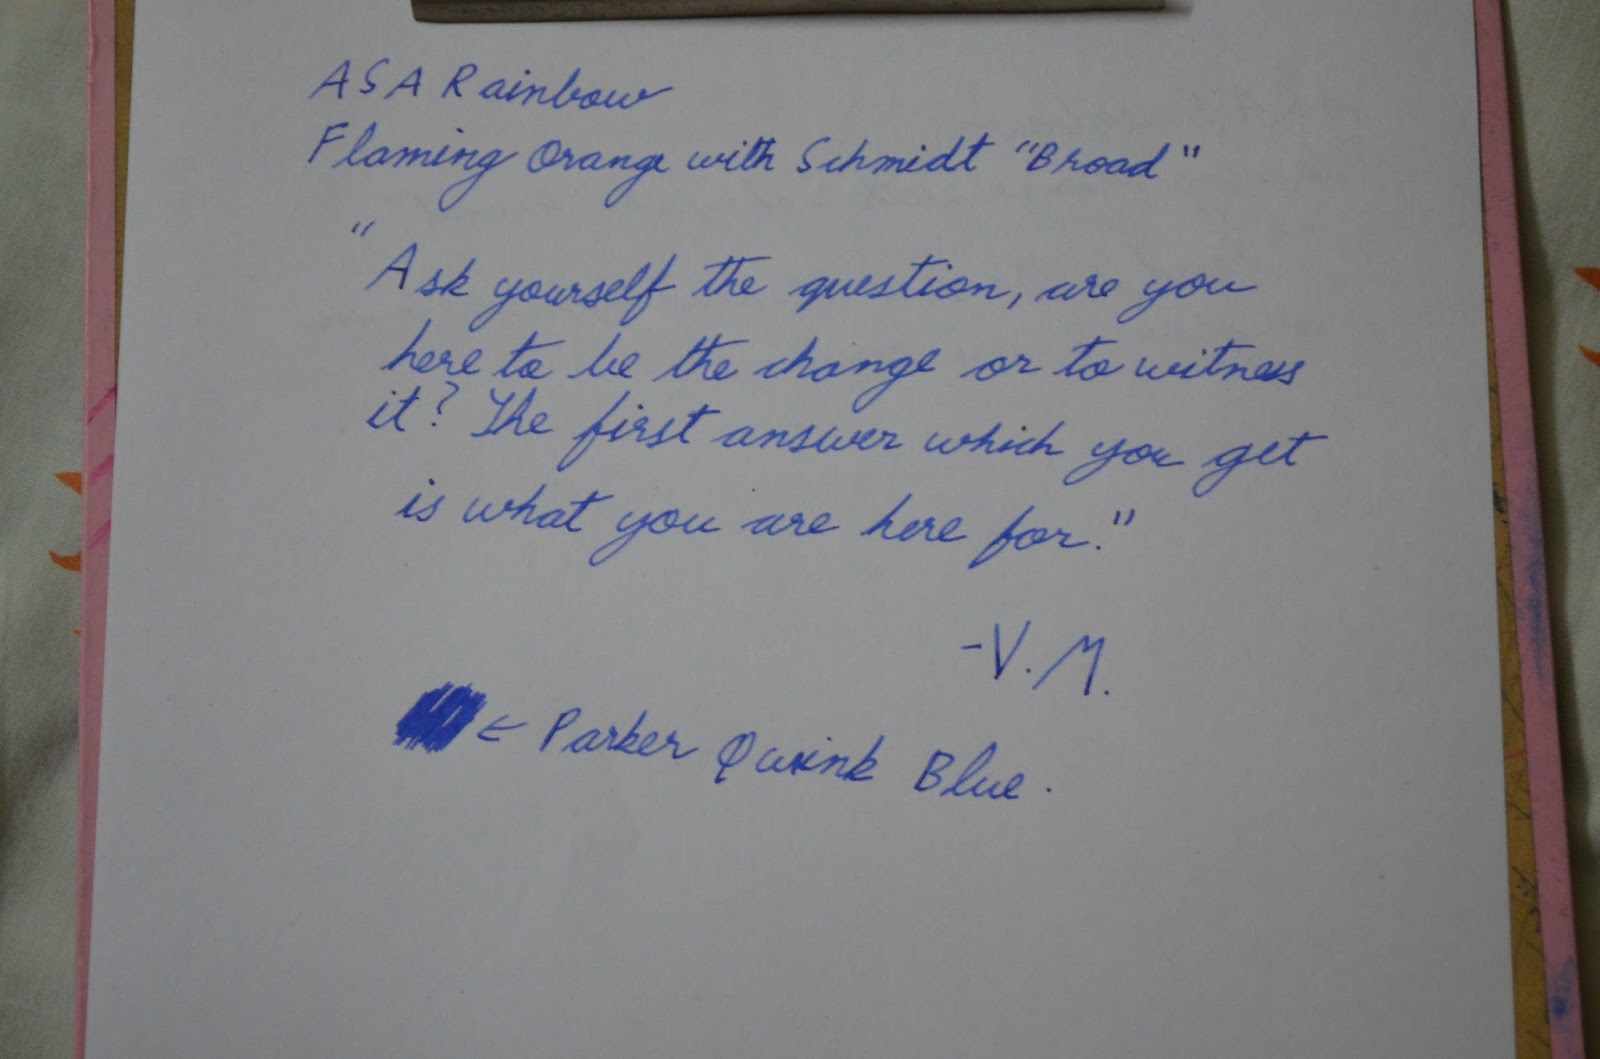 ASA Rainbow
Flaming Orange with Schmidt "Broad"
"Ask yourself the question, are you
here to be the change or to witness
it? The first answer which you get
is what you are here for."
-V.M.
← Parker Quink Blue.